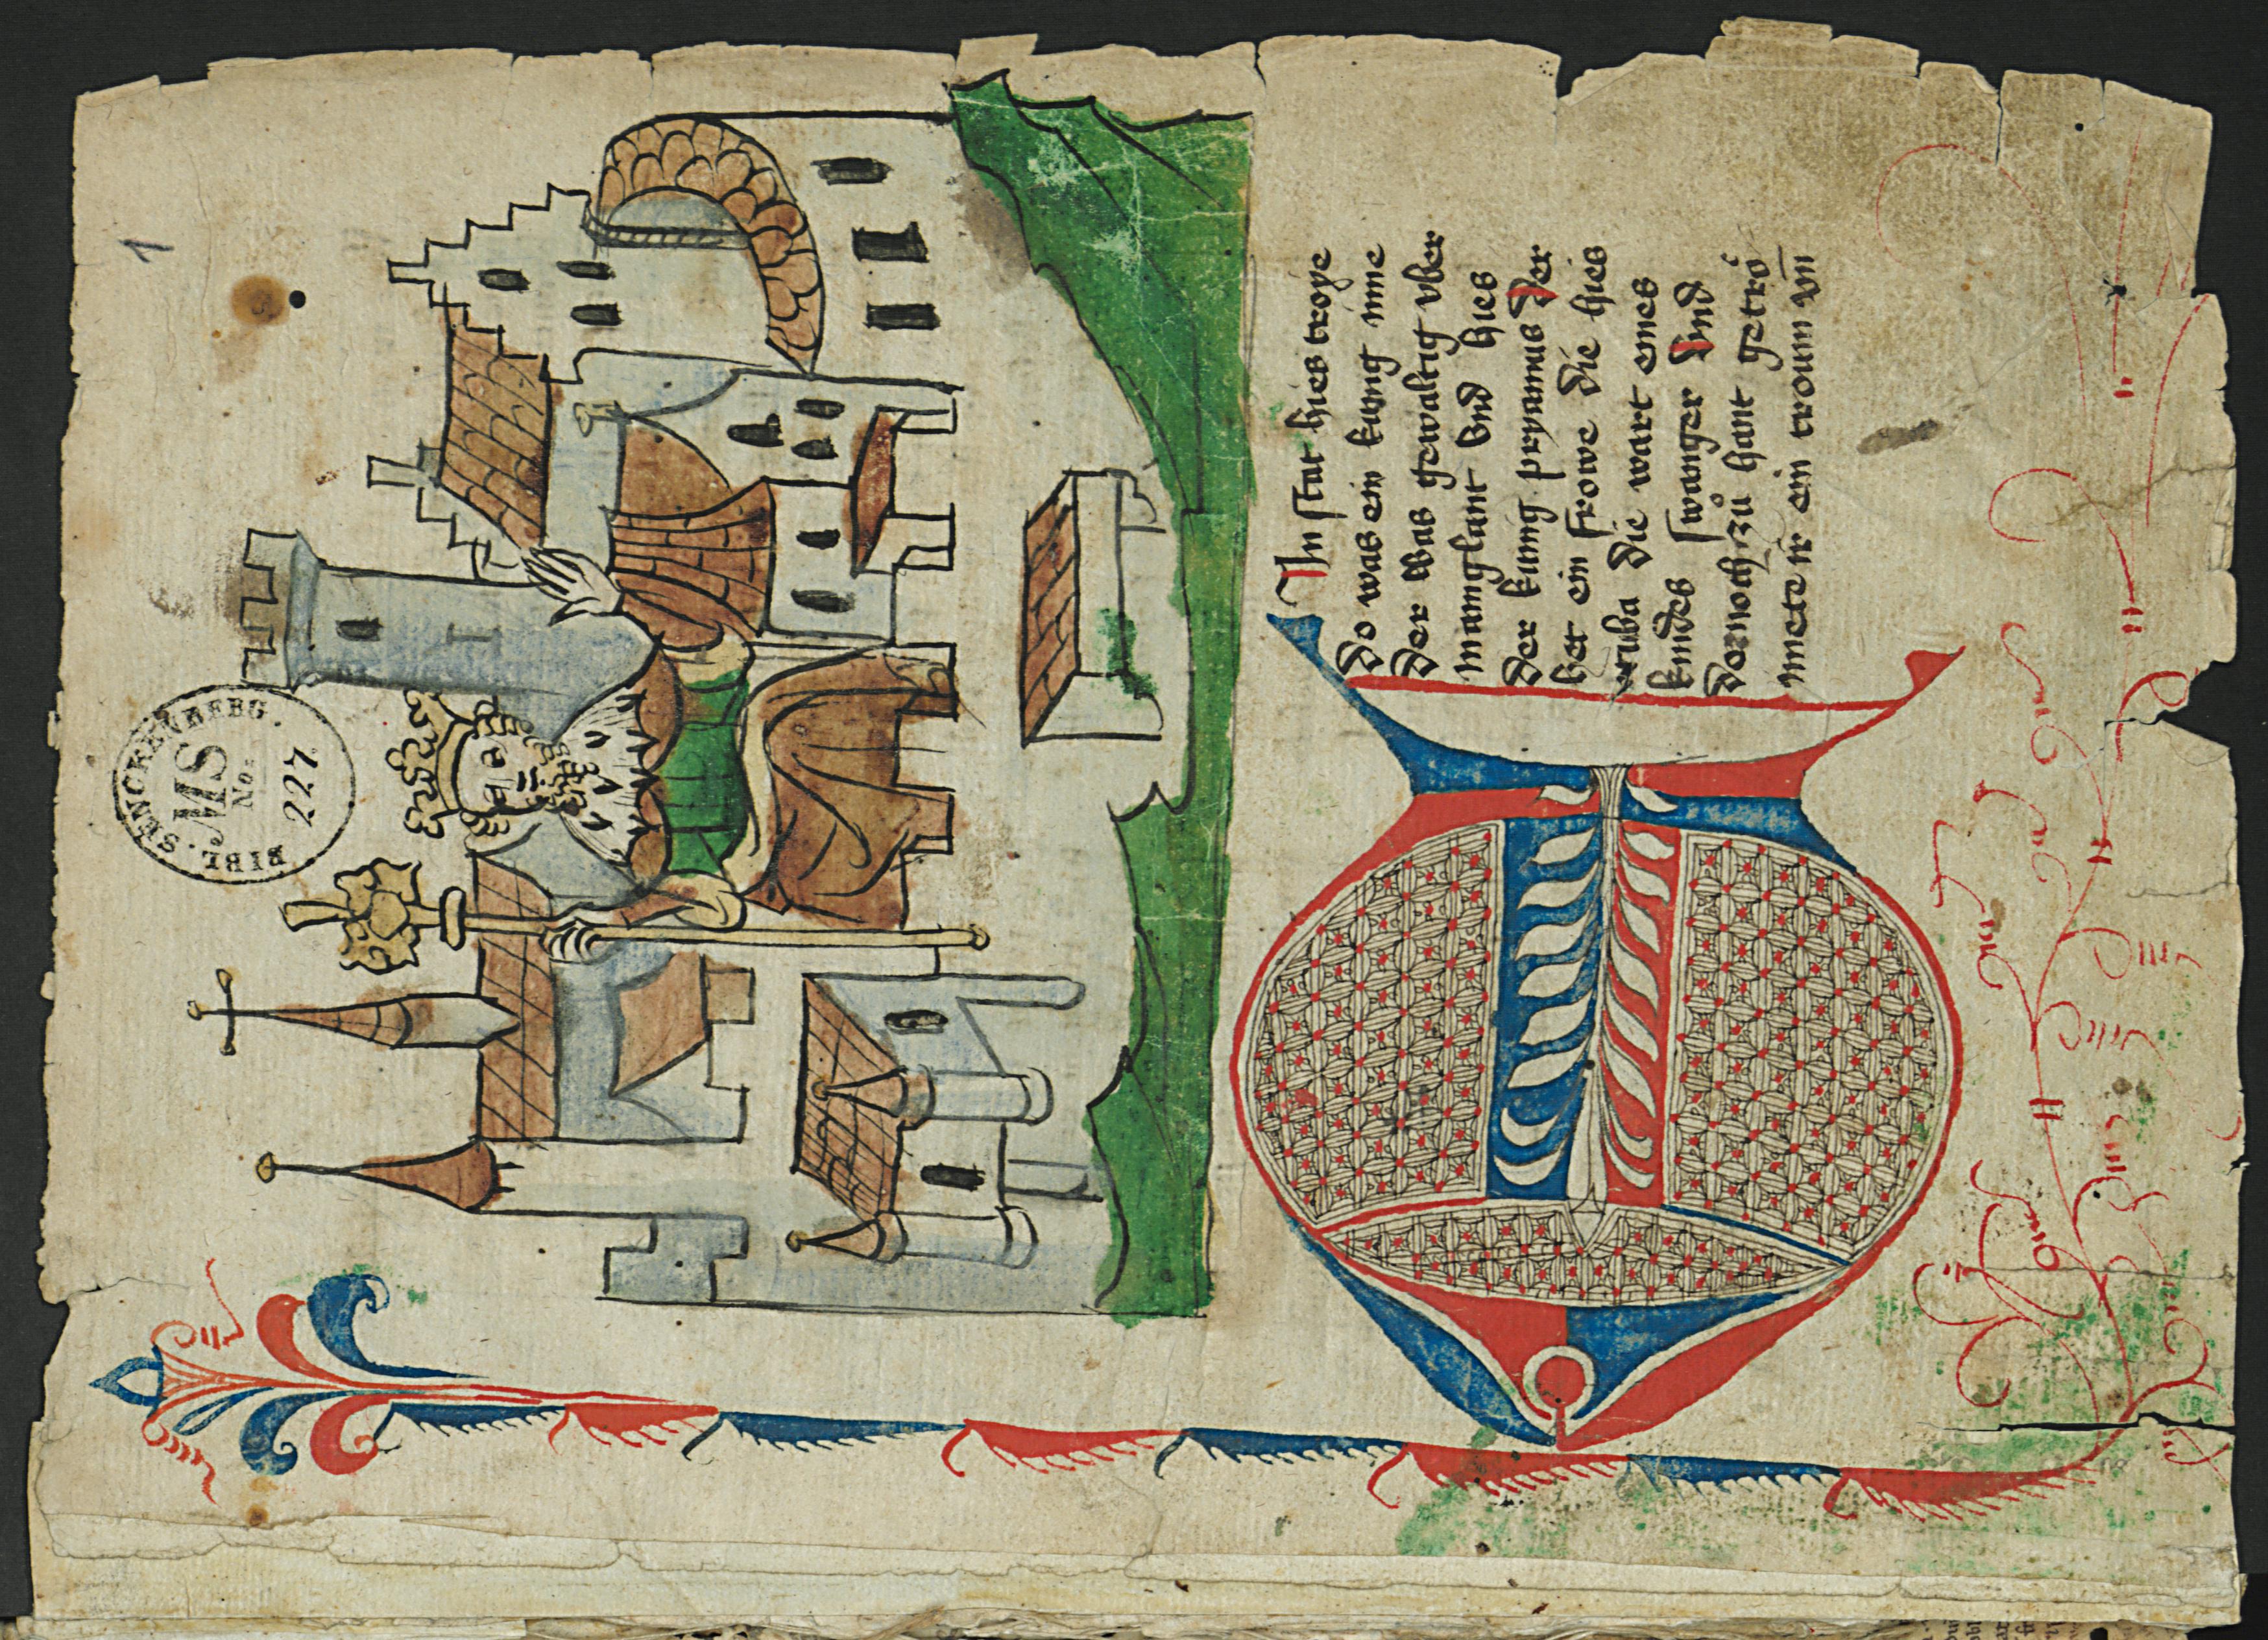 1
BIBL. SENCKENBERG.
MS
No:
227.
EIn stat hies troye
Do was ein kunig inne
Der was gewaltig vber
manig lant vnd hies
Der kunig pryamus Der
het ein frowe die hies
die wart eines
kindes swanger Vnd
Dornoch zuͦ hant getroͮ
mete ir ein troum wi